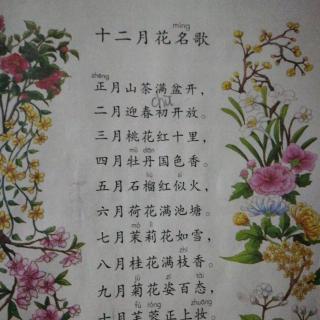 míng
十二月花名歌
zhēng
正月山茶满盆开，
chū
二月迎春初开放。
三月桃花红十里，
mǔ dān
四月牡丹国色香。
liú sì
五月石榴红似火，
六月荷花满池塘。
mò lì
七月茉莉花如雪，
zhī
八月桂花满枝香。
jú zī tài
九月菊花姿百态，
fú róng zhuāng
十月芙蓉正上妆。